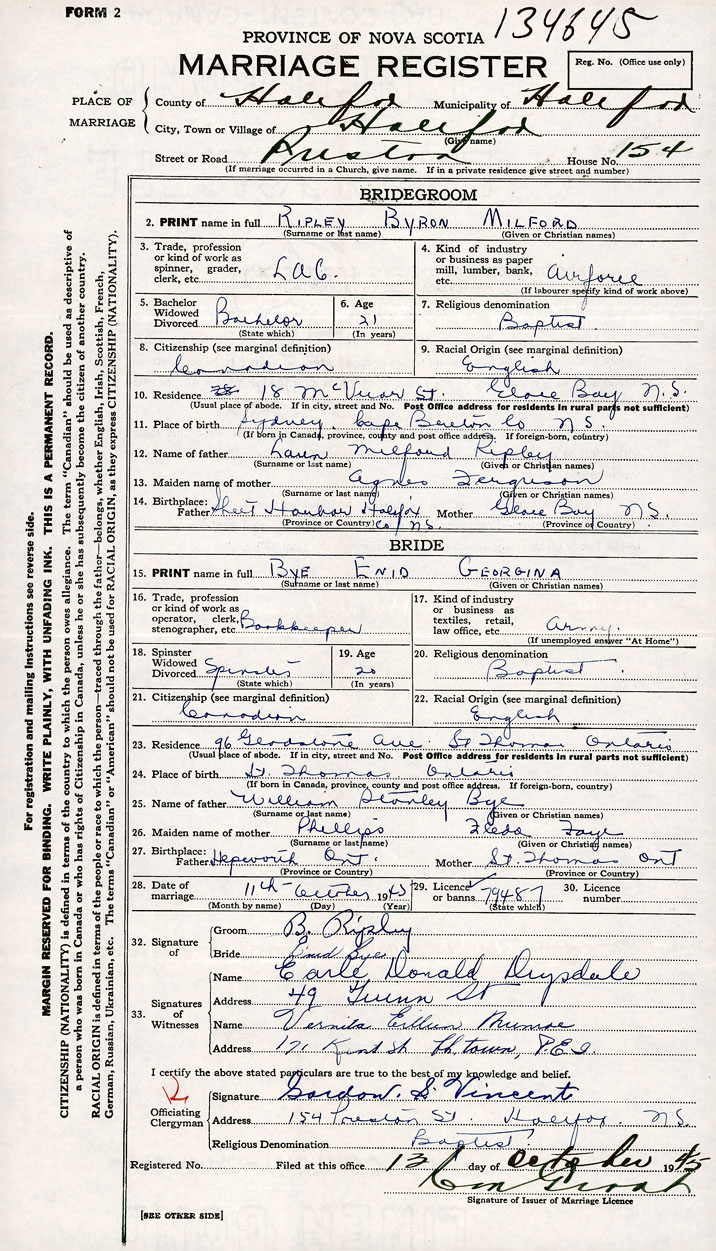 FORM 2
134645
PROVINCE OF NOVA SCOTIA
MARRIAGE REGISTER
Reg. No. (Office use only)
PLACE OF MARRIAGE
County of Halifax Municipality of Halifax
City, Town or Village of Halifax
(Give name)
Street or Road Preston House No. 154
(If marriage occurred in a Church, give name. If in a private residence give street and number)
BRIDEGROOM
2. PRINT name in full RIPLEY BYRON MILFORD
(Surname or last name) (Given or Christian names)
3. Trade, profession or kind of work as spinner, grader, clerk, etc. L.A.C.
4. Kind of industry or business as paper mill, lumber, bank, etc. Airforce
(If labourer specify kind of work above)
5. Bachelor Widowed Divorced Bachelor
(State which)
6. Age 21
(In years)
7. Religious denomination
Baptist
8. Citizenship (see marginal definition)
Canadian
9. Racial Origin (see marginal definition)
English
10. Residence 18 McVicar St. Glace Bay N.S.
(Usual place of abode. If in city, street and No. Post Office address for residents in rural parts not sufficient)
11. Place of birth Sydney, Cape Breton Co N.S.
(If born in Canada, province, county and post office address. If foreign-born, country)
12. Name of father Milford Ripley
(Surname or last name) (Given or Christian names)
13. Maiden name of mother Agnes Ferguson
(Surname or last name) (Given or Christian names)
14. Birthplace:
Father Sheet Harbor Halifax Co N.S. Mother Glace Bay N.S.
(Province or Country) (Province or Country)
BRIDE
15. PRINT name in full BYE ENID GEORGINA
(Surname or last name) (Given or Christian names)
16. Trade, profession or kind of work as operator, clerk, stenographer, etc. Bookkeeper
17. Kind of industry or business as textiles, retail, law office, etc. Army
(If unemployed answer "At Home")
18. Spinster Widowed Divorced Spinster
(State which)
19. Age 20
(In years)
20. Religious denomination
Baptist
21. Citizenship (see marginal definition)
Canadian
22. Racial Origin (see marginal definition)
English
23. Residence 96 Gladstone Ave St Thomas Ontario
(Usual place of abode. If in city, street and No. Post Office address for residents in rural parts not sufficient)
24. Place of birth St. Thomas Ontario
(If born in Canada, province, county and post office address. If foreign-born, country)
25. Name of father William Stanley Bye
(Surname or last name) (Given or Christian names)
26. Maiden name of mother Phillips Fleda Faye
(Surname or last name) (Given or Christian names)
27. Birthplace:
Father Hepworth Ont. Mother St. Thomas Ont
(Province or Country) (Province or Country)
28. Date of marriage 11th October 1945
(Month by name) (Day) (Year)
29. Licence or banns 79487
(State which)
30. Licence number
32. Signature of
Groom B. Ripley
Bride Enid Bye
33. Signatures of Witnesses
Name Earle Donald Drysdale
Address 49 St
Name Vernita Munroe
Address 171 Kent St Ch'town, P.E.I.
I certify the above stated particulars are true to the best of my knowledge and belief.
Officiating Clergyman
Signature Gordon S. Vincent
Address 154 Preston St. Halifax N.S.
Religious Denomination Baptist
Registered No. Filed at this office 13 day of October 1945
Signature of Issuer of Marriage Licence
[SEE OTHER SIDE]
For registration and mailing instructions see reverse side.
MARGIN RESERVED FOR BINDING. WRITE PLAINLY, WITH UNFADING INK. THIS IS A PERMANENT RECORD.
CITIZENSHIP (NATIONALITY) is defined in terms of the country to which the person owes allegiance. The term "Canadian" should be used as descriptive of
a person who was born in Canada or who has rights of Citizenship in Canada, unless he or she has subsequently become the citizen of another country.
RACIAL ORIGIN is defined in terms of the people or race to which the person—traced through the father—belongs, whether English, Irish, Scottish, French,
German, Russian, Ukrainian, etc. The terms "Canadian" or "American" should not be used for RACIAL ORIGIN, as they express CITIZENSHIP (NATIONALITY).